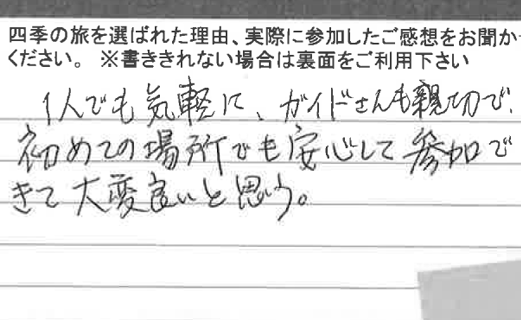 四季の旅を選ばれた理由、実際に参加したご感想をお聞か
ください。 ※書ききれない場合は裏面をご利用下さい
1人でも気軽に、ガイドさんも親切で、
初めての場所でも安心して参加で
きて大変良いと思う。